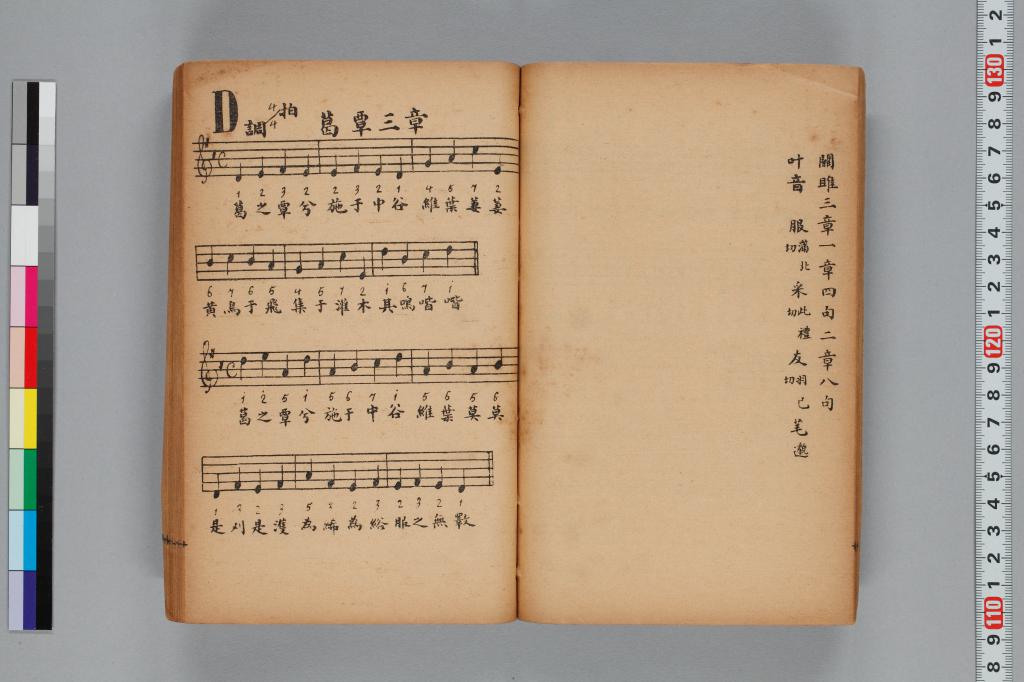 關雎三章一章四句二章八句
叶音 服蒲北切 采此禮切 友羽已切 筆邈
D調 4/4拍 葛覃三章
1 2 3 2 2 3 2 1 4 5 7 2
葛之覃兮 施于中谷 維葉萋萋
6 7 6 5 4 5 7 2 i 6 7 i
黃鳥于飛 集于灌木 其鳴喈喈
i 2 5 i 5 6 7 i 5 6 5 6
葛之覃兮 施于中谷 維葉莫莫
1 3 2 3 5 3 2 3 2 3 2 1
是刈是濩 為絺為綌 服之無斁
12
130
9
8
7
6
5
4
3
2
1
120
9
8
7
6
5
4
3
2
1
110
9
8